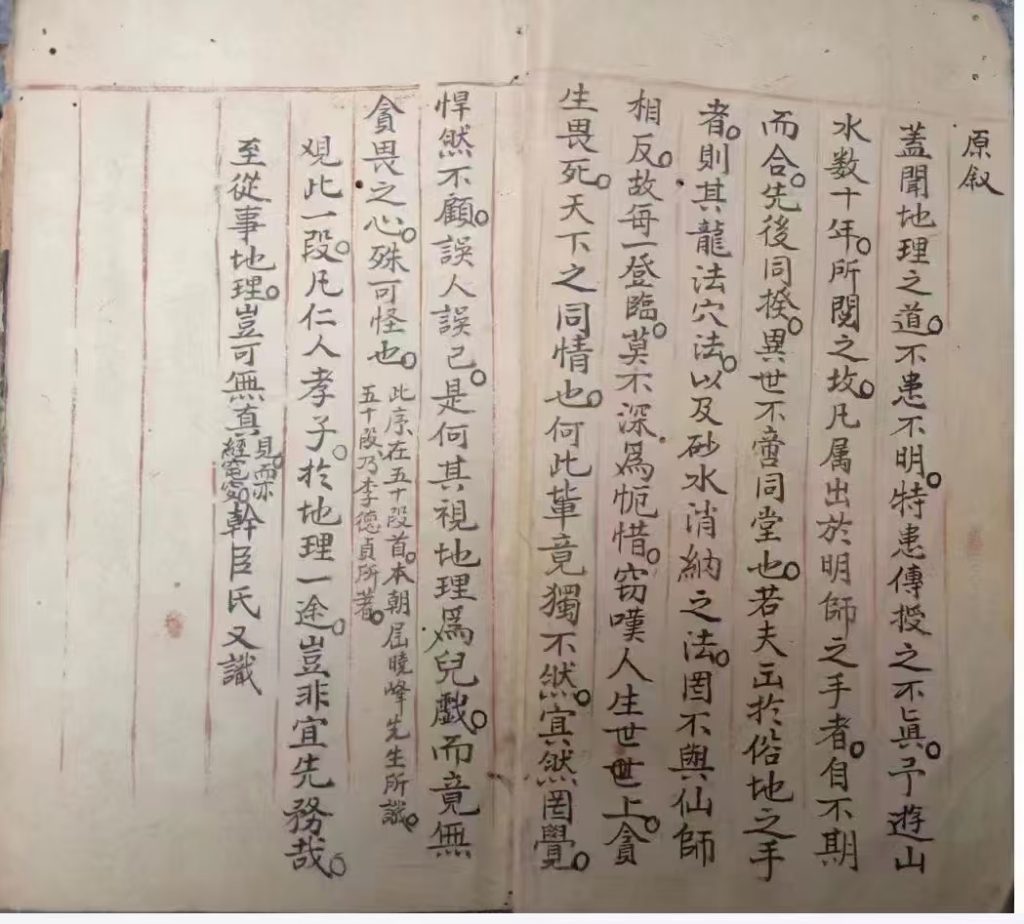 原叙
蓋聞地理之道。不患不明。特患傳授之不眞。予遊山
水数十年。所閱之坟。凡属出於明師之手者。自不期
而合。先後同揆。異世不啻同堂也。若夫出於俗地之手
者。則其龍法穴法。以及砂水消納之法。罔不與仙師
相反。故每一登臨。莫不深爲怩惜。窃嘆人生世世上。貪
生畏死。天下之同情也。何此輩竟獨不然。寘然罔覺。
悍然不顧。誤人誤己。是何其視地理爲兒戲。而竟無
貪畏之心。殊可怪也。
此序在五十段首。本朝屈曉峰先生所識。
五十段乃李德貞所著。
观此一段。凡仁人孝子。於地理一途。豈非宜先務哉。
至從事地理。豈可無真
見。而亦
經
幹臣氏又識